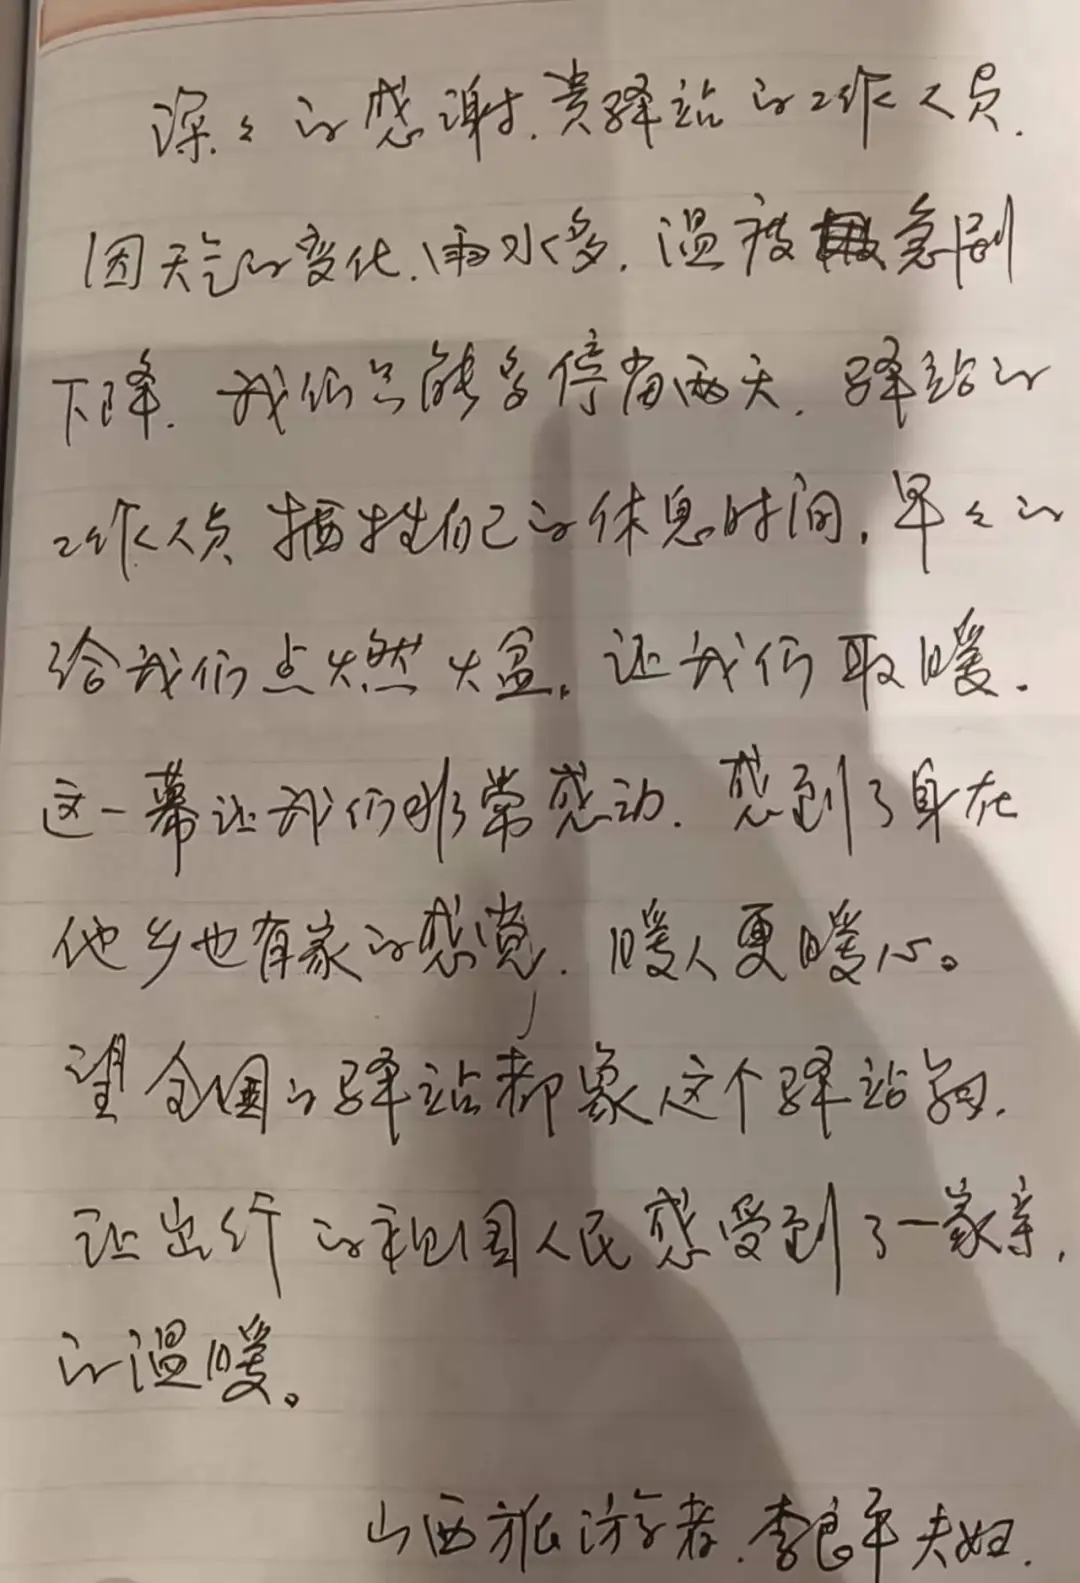 深々的感谢.贵驿站的工作人员.
因天气的变化.雨水多.温度急剧
下降.我们只能多停留两天.驿站的
工作人员牺牲自己的休息时间,早々的
给我们点燃火盆,让我们取暖.
这一幕让我们非常感动.感到了身在
他乡也有家的感觉.暖人更暖心。
望全国的驿站都象这个驿站.
让出行的祖国人民感受到了一家亲,
的温暖。
山西旅游者.李良平夫妇.